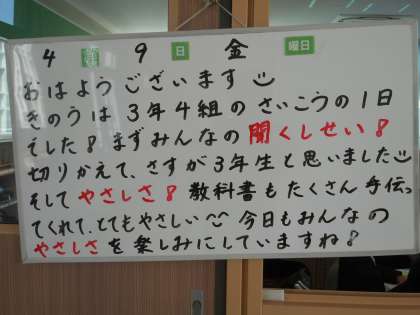 4 月 9 日 金 曜日
おはようございます
きのうは3年4組のさいこうの1日
でした！まずみんなの聞くしせい！
切りかえて、さすが3年生と思いました
そしてやさしさ！教科書もたくさん手伝っ
てくれて、とてもやさしい^^今日もみんなの
やさしさを楽しみにしていますね！